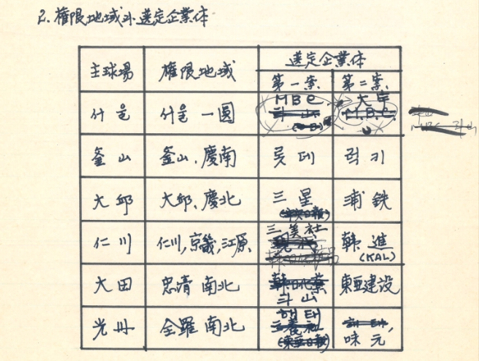 2. 権限地域과 選定企業体
選定企業体
主球場 権限地域 第一案. 第二案.
서울 서울 一圓 MBC 大宇
M.B.C.
釜山 釜山, 慶南 롯데 럭키
大邱 大邱, 慶北 三星 浦铁
仁川 仁川, 京畿, 江原 三美社 韩進
(KAL)
大田 忠清 南北 斗山 東亜建設
光州 全羅 南北 해태 味元